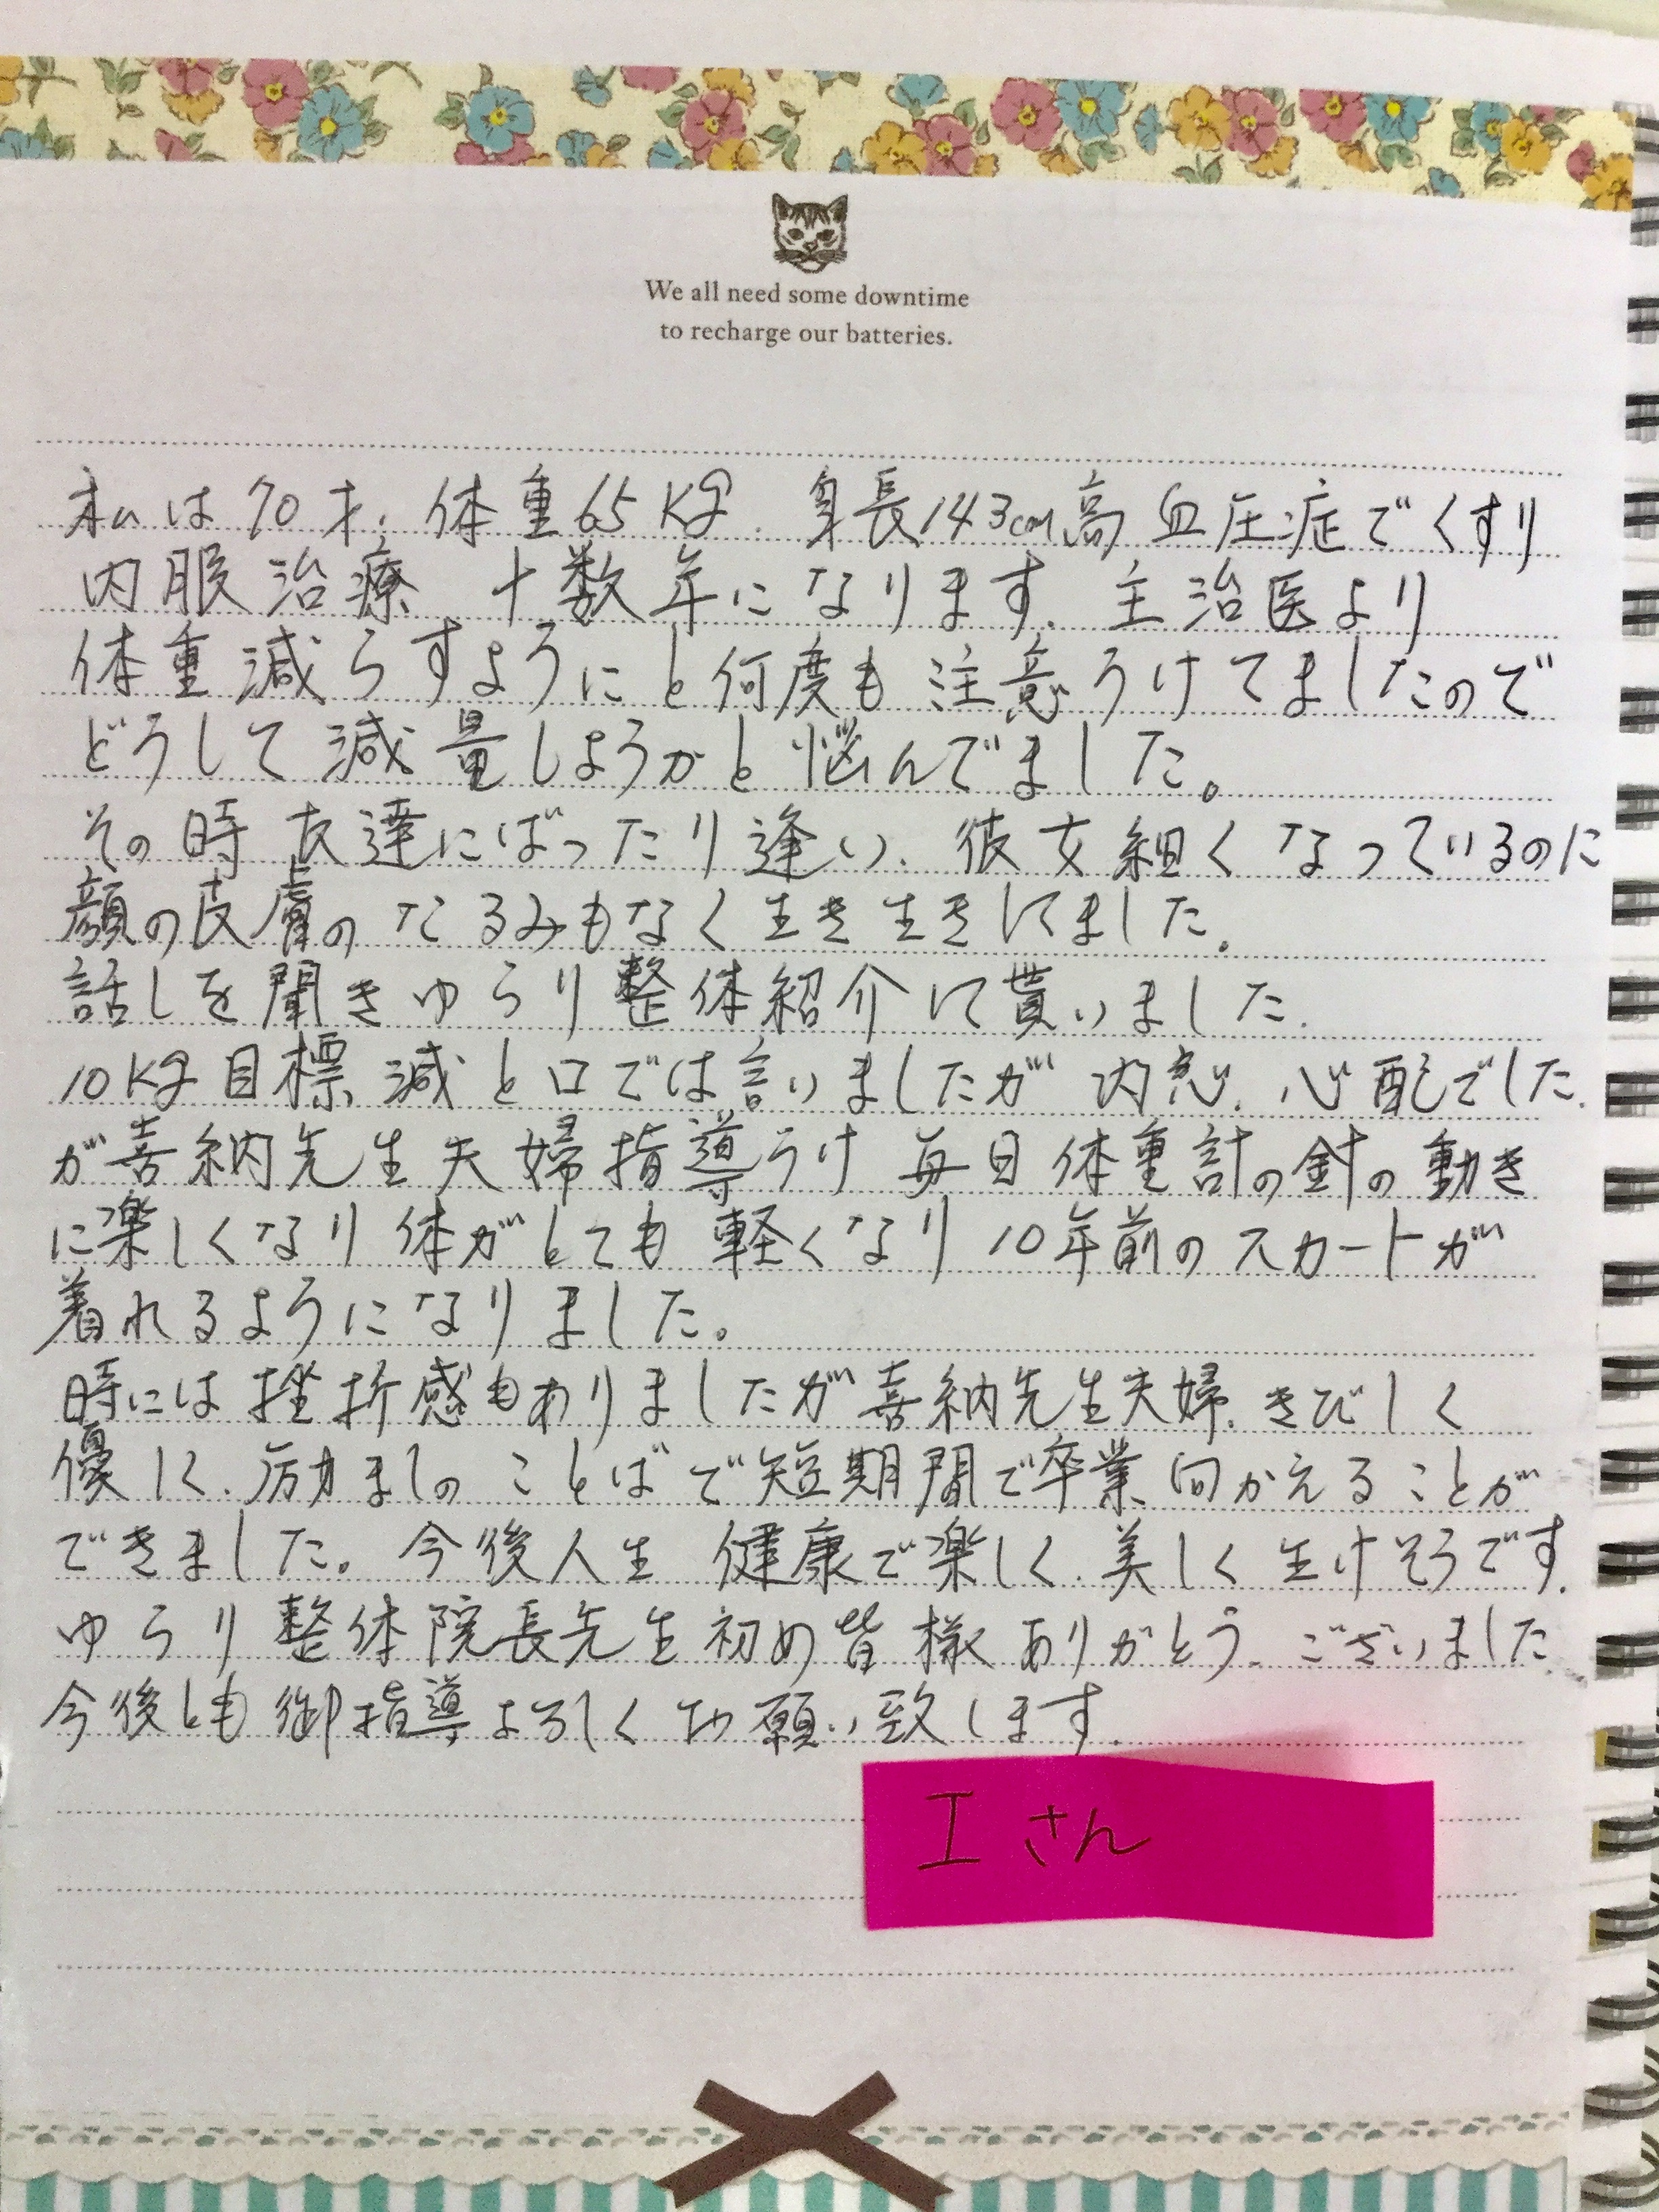 We all need some downtime
to recharge our batteries.
私は70才、体重65Kg、身長143cm高血圧症でくすり
内服治療、十数年になります、主治医より
体重減らすようにと何度も注意うけてましたので
どうして減量しようかと悩んでました。
その時友達にばったり逢い、彼女細くなっているのに
顔の皮膚のたるみもなく生き生きしてました。
話しを聞きゆらり整体紹介して貰いました。
10Kg目標減と口では言いましたが内心、心配でした、
が喜納先生夫婦指導うけ毎日体重計の針の動き
に楽しくなり体がとても軽くなり10年前のスカートが
着れるようになりました。
時には挫折感もありましたが喜納先生夫婦、きびしく
優しく、励ましのことばで短期間で卒業向かえることが
できました。今後人生健康で楽しく、美しく生けそうです、
ゆらり整体院長先生初め皆様ありがとう、ございました
今後とも御指導よろしくお願い致します、
Iさん